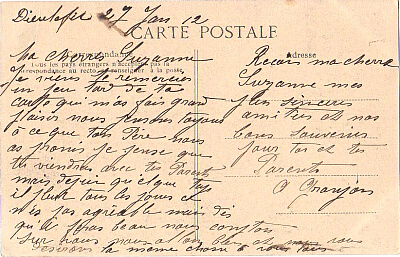 Dieulefit 27 Jan 12
CARTE POSTALE
Correspondance
Adresse
Tous les pays étrangers n'acceptent pas la
correspondance au recto se renseigner à la poste
Ma cherre Suzanne
Je viens te remercier
un peu tard de ta
carte qui mas fais grand
plaisir nous pensons toujours
à ce que ton Père nous
as promis je pense que
tu viendras avec tes Parents
mais depuis quelque
il pleut tous les jours et
nes pas agréable mais dès
qu'il feras beau nous comptons
sur vous nous bien et vous
la même chose à vous tous
Recois ma cherre
Suzanne mes
plus sinceres
amities et nos
bons souvenirs
pour toi et tes
Parents